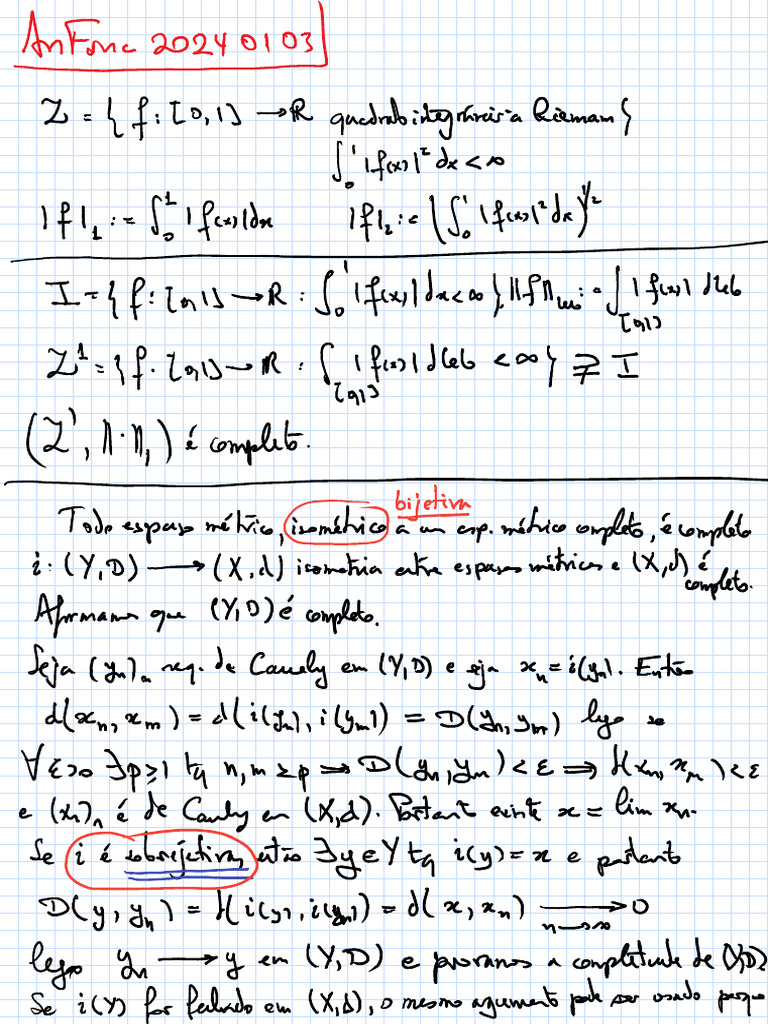 AnFunc 2024 01 03
Z = { f : [0,1] → R quadrado integráveis a Riemann }
∫₀¹ |f(x)|² dx < ∞
|f|₁ := ∫₀¹ |f(x)| dx   |f|₂ := (∫₀¹ |f(x)|² dx)^{1/2}
I = { f : [0,1] → R : ∫₀¹ |f(x)| dx < ∞ }, ‖f‖ := ∫_{[0,1]} |f(x)| dleb
Z¹ = { f : [0,1] → R : ∫_{[0,1]} |f(x)| dleb < ∞ } ⊋ I
(Z¹, ‖·‖₁) é completo.
bijetiva
Todo espaço métrico, isométrico a um esp. métrico completo, é completo
i : (Y,D) → (X,d) isometria entre espaços métricos e (X,d) é
completo.
Afirmamos que (Y,D) é completo.
Seja (yₙ)ₙ seq. de Cauchy em (Y,D) e seja xₙ = i(yₙ). Então
d(xₙ, xₘ) = d(i(yₙ), i(yₘ)) = D(yₙ, yₘ) logo se
∀ε>0 ∃p≥1 tq n,m ≥ p ⇒ D(yₙ, yₘ) < ε ⇒ d(xₙ, xₘ) < ε
e (xₙ)ₙ é de Cauchy em (X,d). Portanto existe x = lim xₙ.
Se i é sobrejetiva, então ∃y∈Y tq i(y) = x e portanto
D(y, yₙ) = d(i(y), i(yₙ)) = d(x, xₙ) → 0
n→∞
logo yₙ → y em (Y,D) e provamos a completude de (Y,D).
Se i(Y) for fechado em (X,d), o mesmo argumento pode ser usado porque